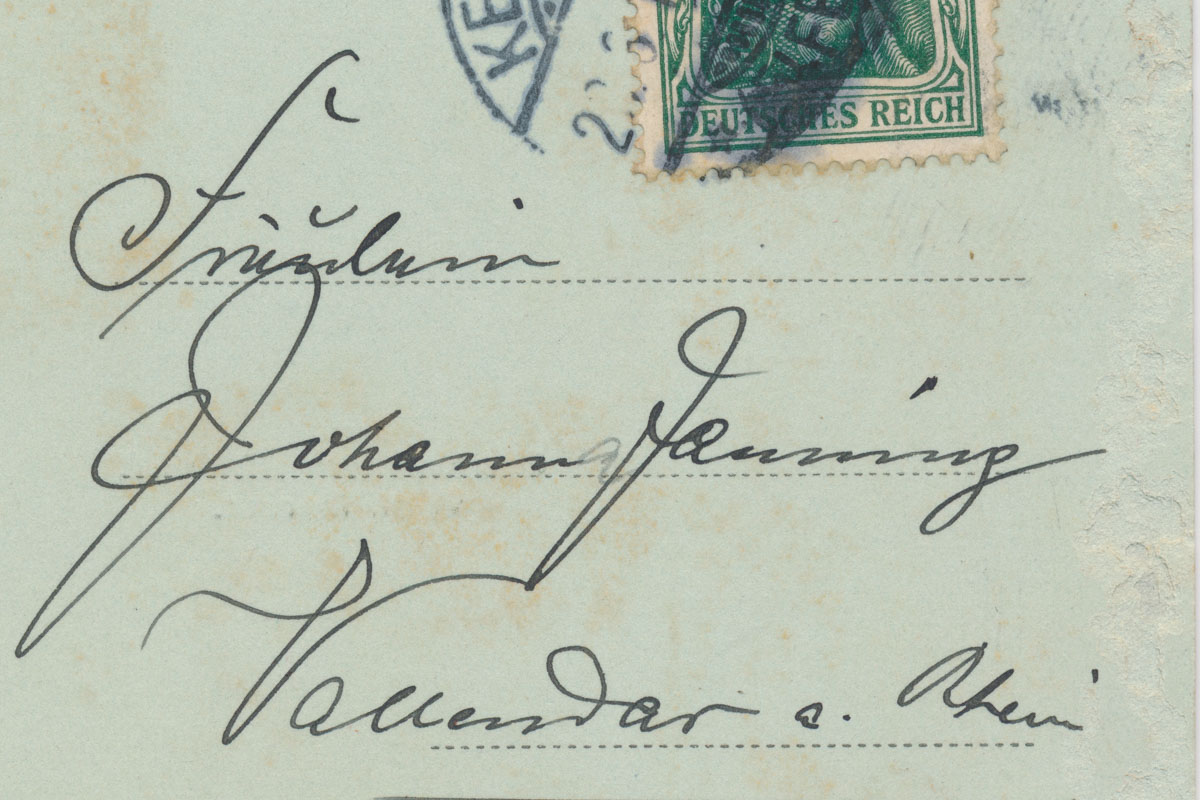 KE
DEUTSCHES REICH
Fräulein
Johanna Janning
Vallendar a. Rhein